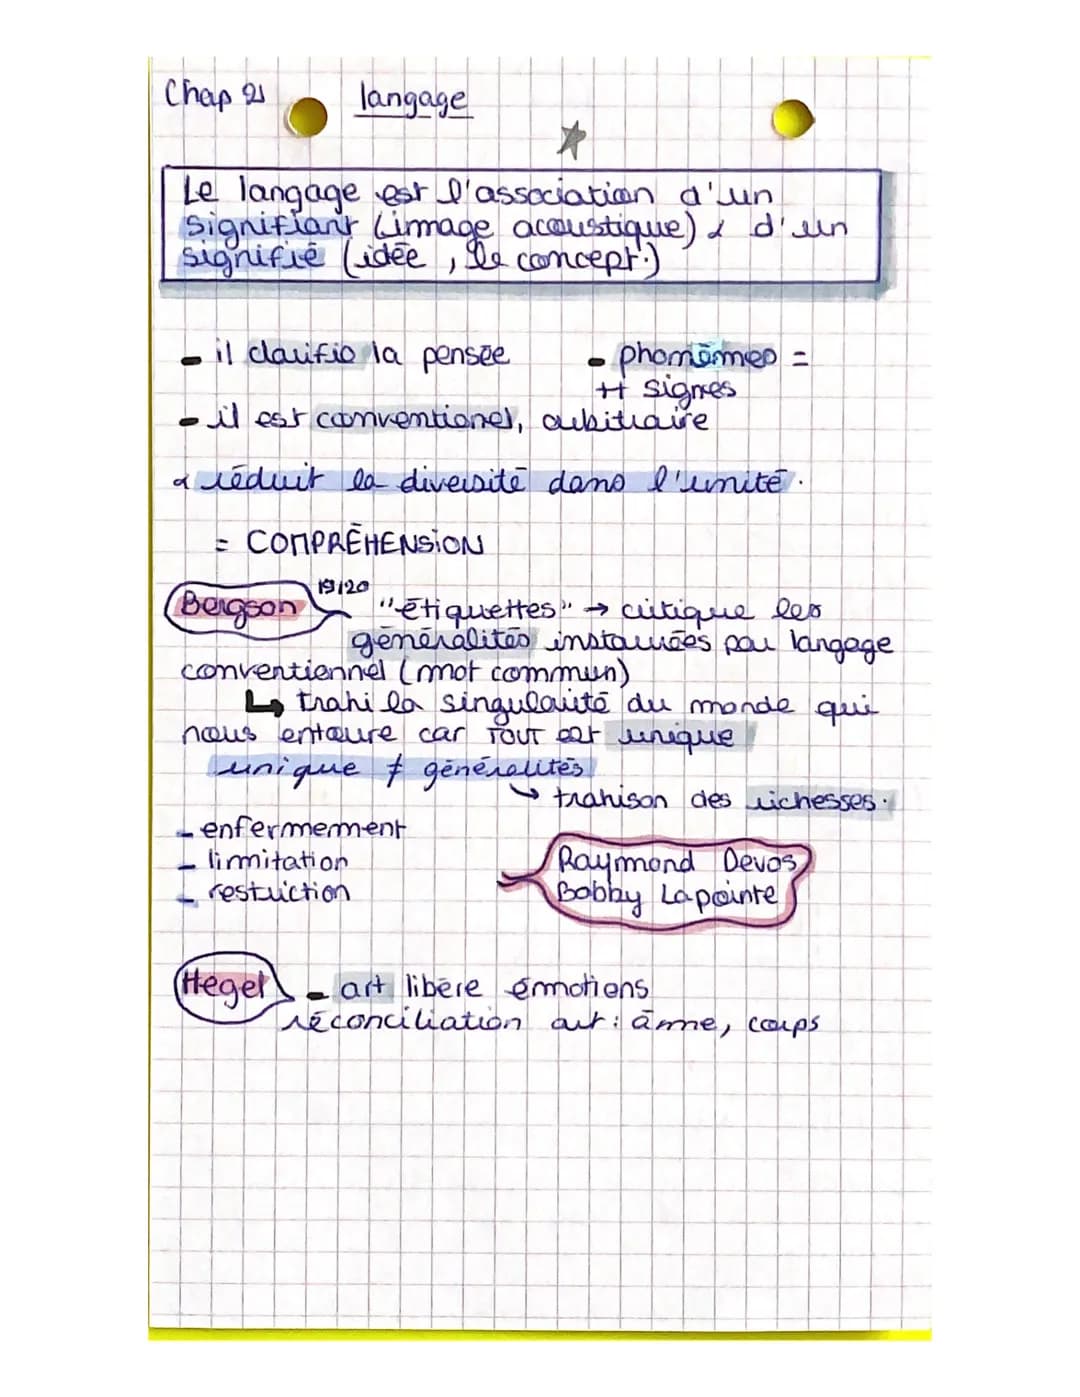 Chap 21 langage
Le langage est l'association d'un
signifiant (image acoustique) & d'un
signifié (idée, le concept.)
- il clarifie la pensée
- phonèmes =
++ signes
- il est conventionel, arbitraire
& réduit la diversité dans l'unité.
= COMPRÉHENSION
Bergson 19/20
"étiquettes" → critique les
généralités instaurées par langage
conventiennel (mot commun)
↳ trahi la singularité du monde qui
nous entoure car TOUT est unique
unique ≠ généralités
↳ trahison des richesses.
- enfermement
- limitation
- restriction
Raymond Devos,
Bobby Lapointe
Hegel - art libère émotions
réconciliation art : âme, corps